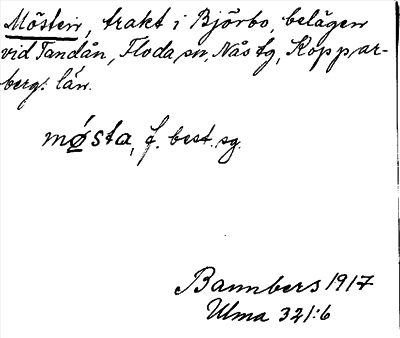 Mösten, trakt i Björbo, belägen
vid Tandån, Floda sn, Nås tg, Koppar-
bergs län.
mø̀sta, f. best. sg.
Bannbers 1917
Ulma 321:6